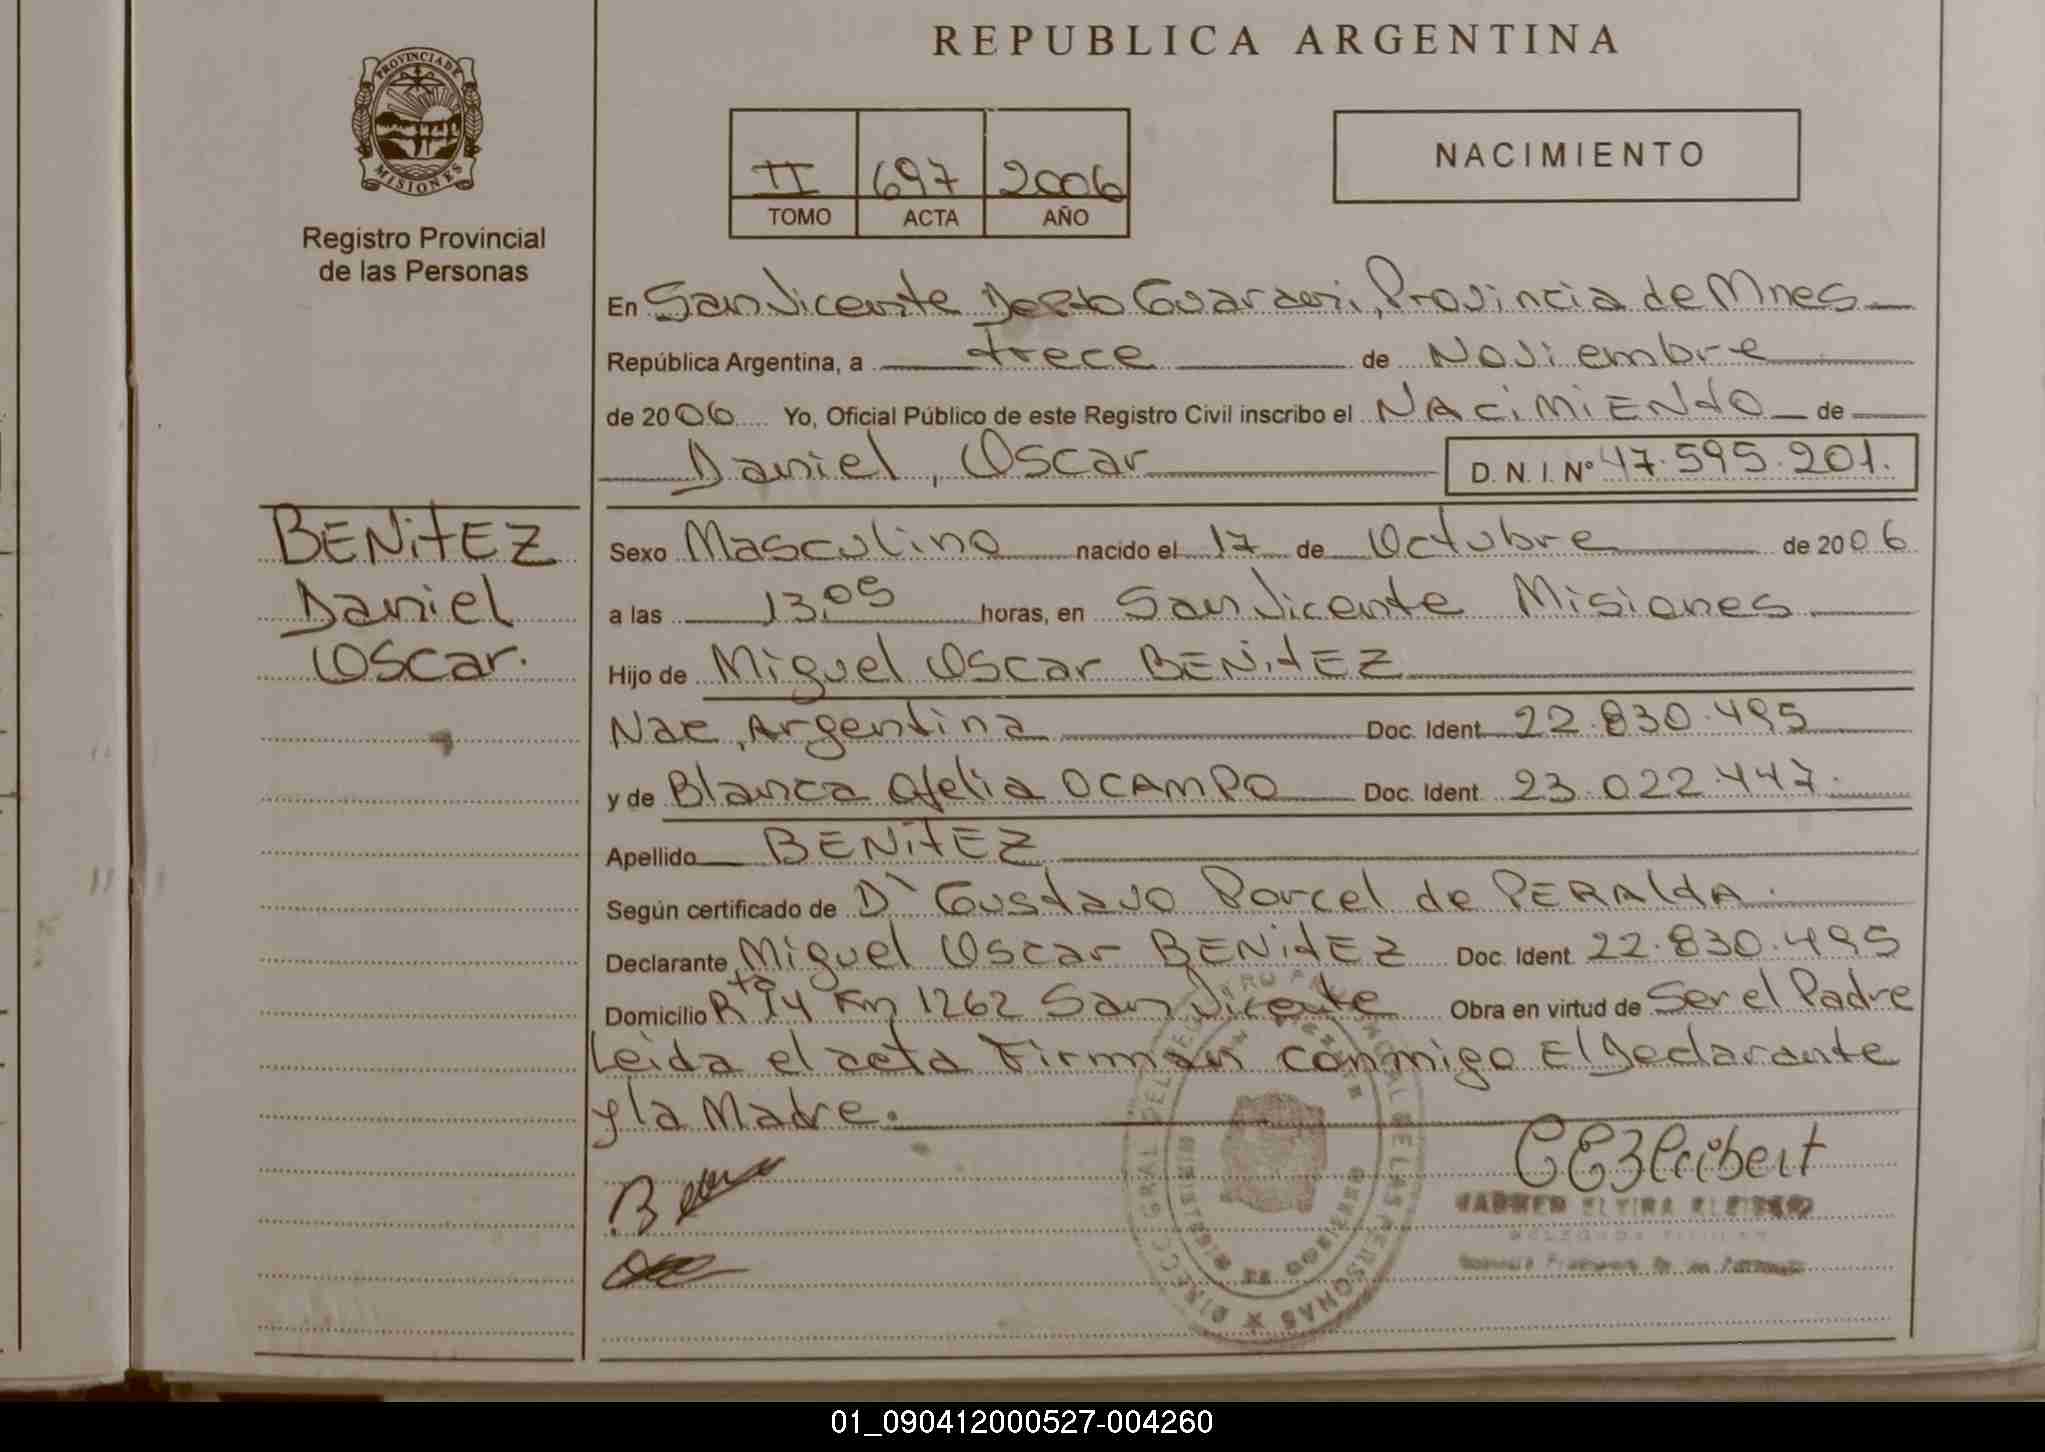 PROVINCIA DE
MISIONES
Registro Provincial
de las Personas
REPUBLICA ARGENTINA
II 697 2006
TOMO ACTA AÑO
NACIMIENTO
En San Vicente Depto Guarani, Provincia de Mnes
República Argentina, a trece de Noviembre
de 2006 Yo, Oficial Público de este Registro Civil inscribo el NACiMiENtO de
Daniel, Oscar D. N. I. Nº 47.595.201.
BENitEZ
Daniel
Oscar.
Sexo Masculino nacido el 17 de Octubre de 2006
a las 13,05 horas, en San Vicente Misiones
Hijo de Miguel Oscar BENitEZ
Nac, Argentina Doc. Ident. 22.830.495
y de Blanca Ofelia OCAMPO Doc. Ident. 23.022.447.
Apellido BENitEZ
Según certificado de D` Gustavo Porcel de PERAltA.
Declarante Miguel Oscar BENitEZ Doc. Ident. 22.830.495
Domicilio Rta 14 Km 1262 San Vicente Obra en virtud de Ser el Padre
Leida el acta Firman conmigo El Declarante
y la Madre.
MINISTERIO DE GOBIERNO
DE LAS PERSONAS
01_090412000527-004260